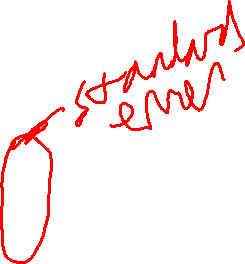 standard
error